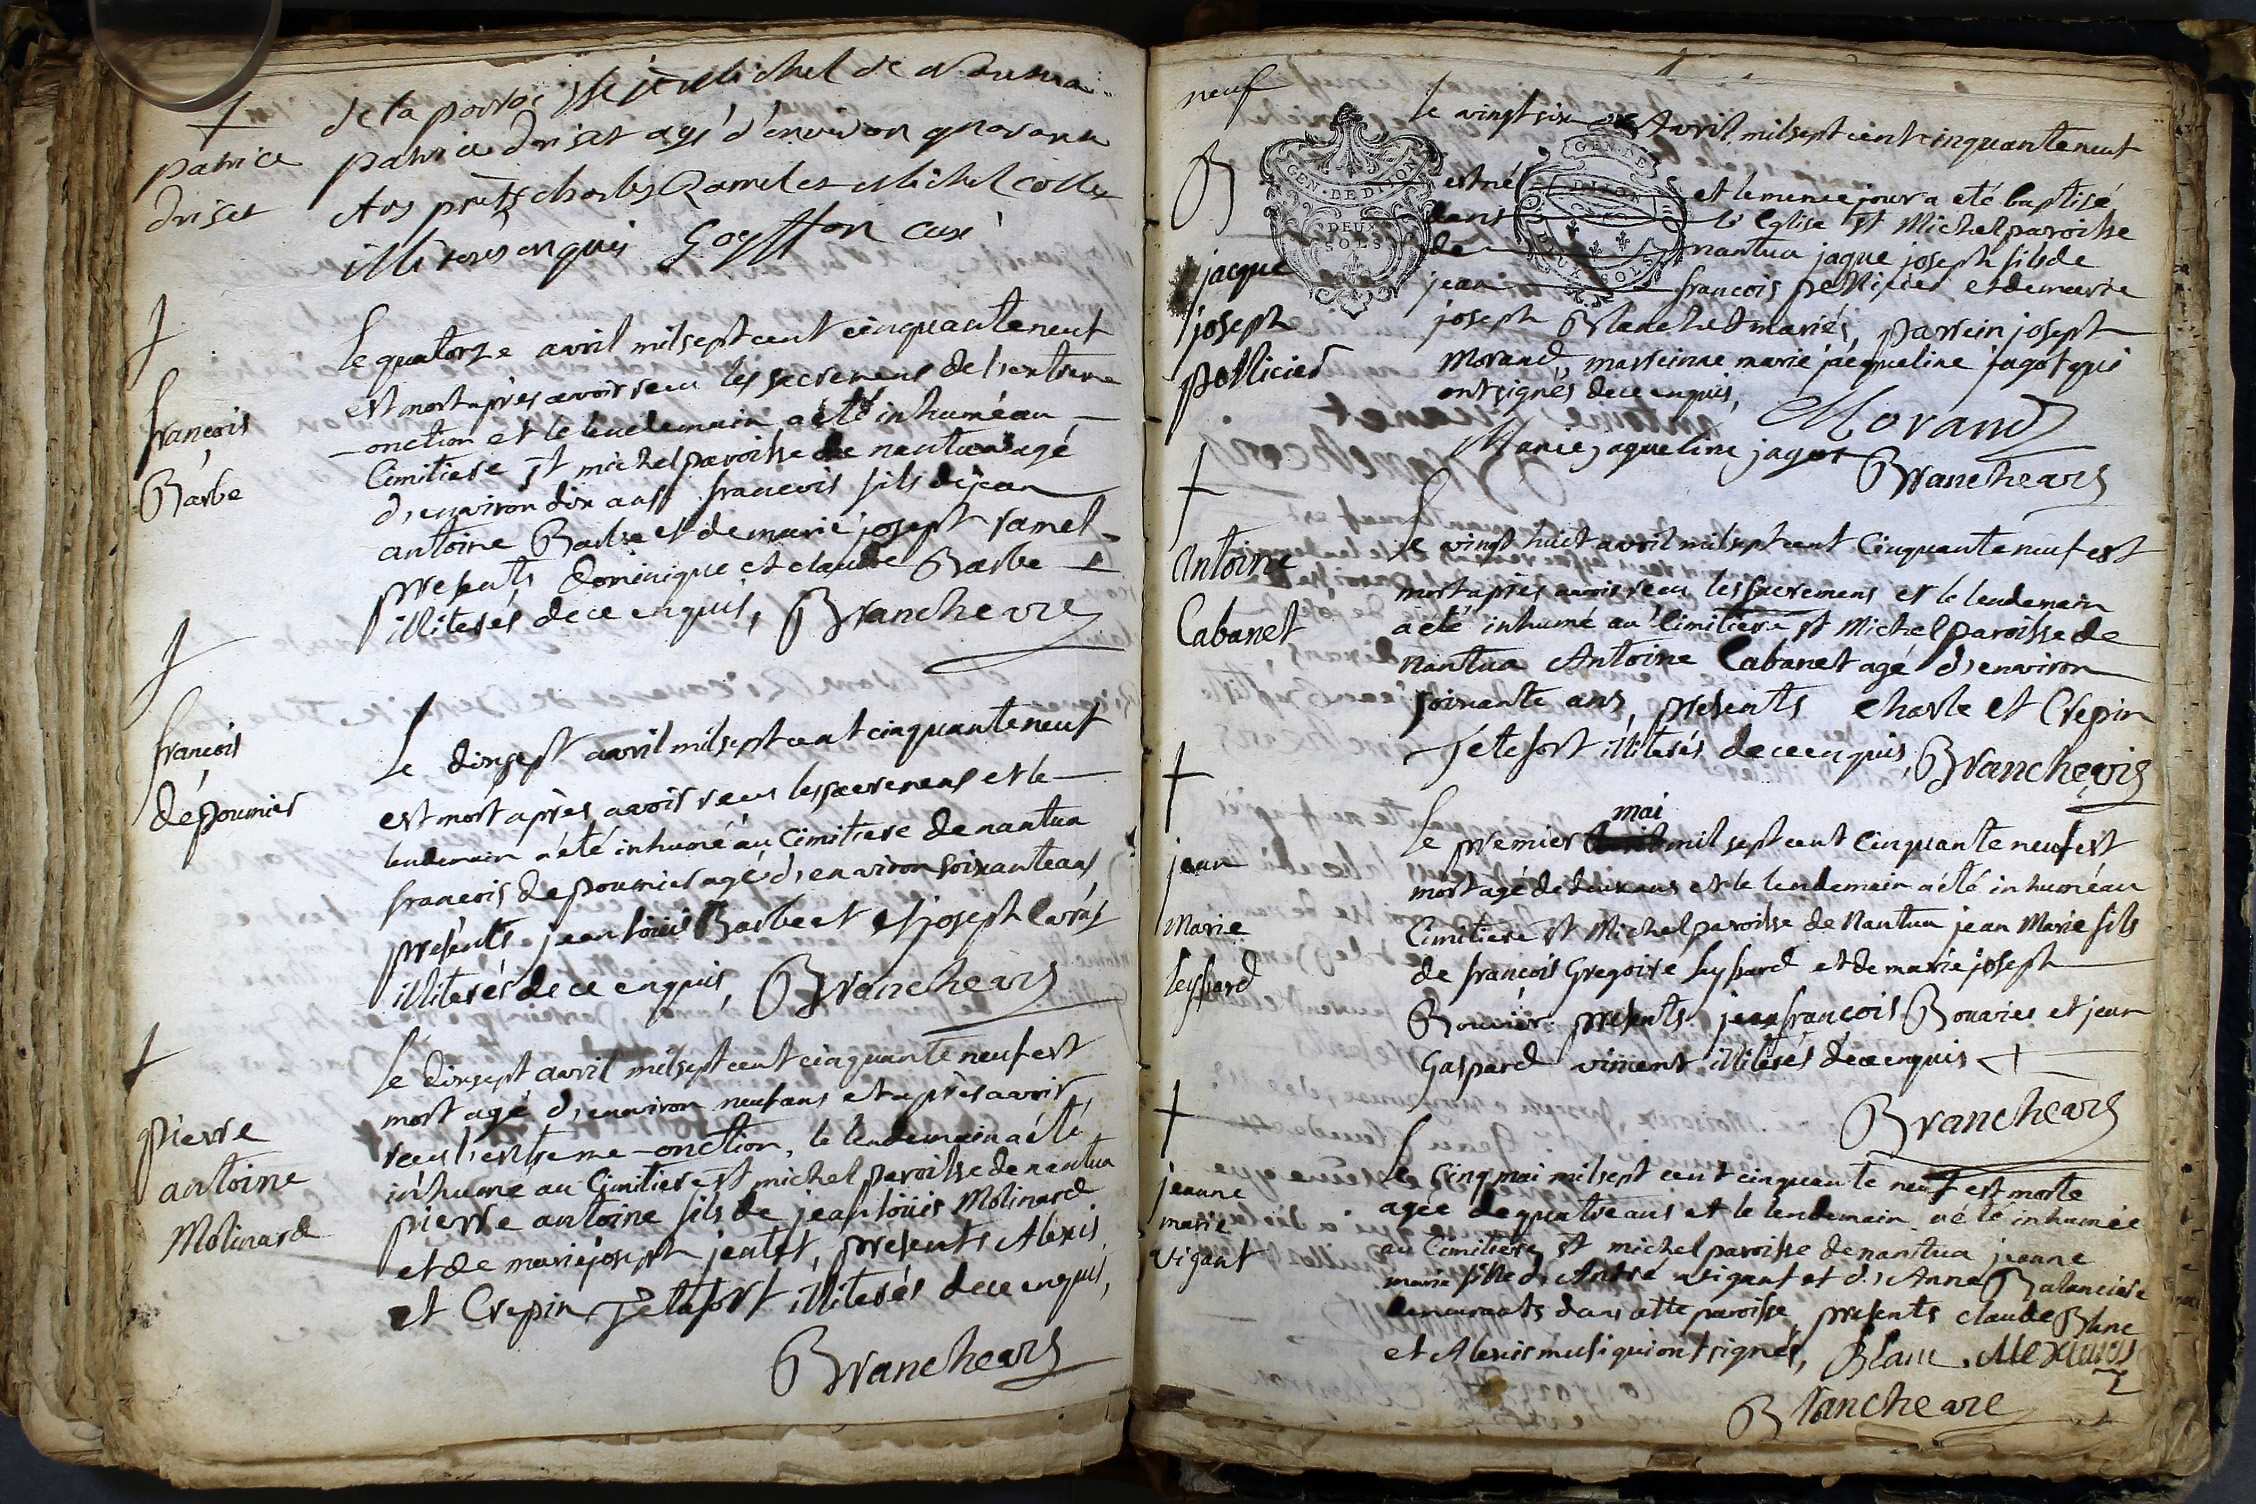 de la paroisse st michel de Nantua
patrice driset agé d'environ quarante
Ans prets charles Ramel et Michel Collet
illiteres enquis Goyffon curé
patrice
driset
le quatorze avril mil sept cent cinquante neuf
est mort après avoir recu les sacremens de l'extreme
onction et le lendemain a été inhumé au
Cimitiere st michel paroisse de nantua agé
d'environ dix ans francois fils de jean
antoine Barbe et de marie josept ramel
presents Dominique et claude Barbe
illiterés de ce enquis, Brancheavre
françois
Barbe
Le dixsept avril mil sept cent cinquante neuf
est mort après avoir recu les sacremens et le
lendemain a été inhumé au Cimitiere de nantua
francois depoumier agé d'environ soixante ans
présents jean loüis Barbe et et joseph
illiterés de ce enquis, Brancheavre
francois
dépoumier
Le dixsept avril mil sept cent cinquante neuf est
mort agé d'environ neuf ans et après avoir
recu l'extreme-onction, le lendemain a été
inhume au Cimitiere st michel paroisse de nantua
pierre antoine fils de jean loüis Molinard
et de marie josept jentet, présents Alexis
et Crepin Jetefort illiterés de ce enquis,
Brancheavre
pierre
antoine
Molinard
neuf
le vingt six Avril mil sept cent cinquante neuf
est né et le meme jour a eté baptisé
dans l'Eglise st Michel paroisse
de nantua jaque joseph fils de
jean francois pellicier et de marie
joseph Blanchet mariés, parrein joseph
Morand, marreinne marie jacqueline jagot qui
ont signés de ce enquis, Morand
Marie jaqueline jagot
Brancheavre
GEN. DE DIJON
DEUX
SOLS
GEN. DE
DIJON
DEUX SOLS
jacque
joseph
pellicier
Le vingt huit avril mil sept cent Cinquante neuf est
mort après avoir recu les sacremens et le lendemain
a eté inhumé au Cimitiere st Michel paroisse de
Nantua Antoine Cabanet agé d'environ
soixante ans, presents Charle et Crepin
Jetefort illiterés de ce enquis, Brancheavre
Antoine
Cabanet
mai
Le premier mil sept cent Cinquante neuf est
mort agé de deux ans et le lendemain a été inhumé au
Cimitiere st Michel paroisse de Nantua jean Marie fils
de françois Gregoire leyssard et de marie joseph
Bouvier presents jean françois Bouvier et jean
Gaspard vincent illiterés de ce enquis
Brancheavre
jean
Marie
leyssard
Le cinq mai mil sept cent cinquante neuf est morte
agée de quatre ans et le lendemain a été inhumée
au Cimitiere st michel paroisse de nantua jeanne
marie fille d'André vigant et d'Anne Balanciere
demeurants dans cette paroisse, presents claude Blanc
et Alexis qui ont signés, Blanc.
Blancheavre
jeanne
marie
vigant